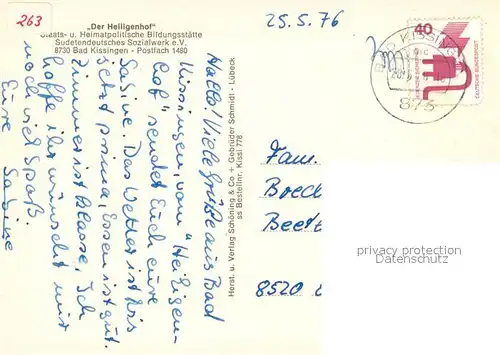 263
"Der Heiligenhof"
Staats- u. Heimatpolitische Bildungsstätte
Sudetendeutsches Sozialwerk e.V.
8730 Bad Kissingen - Postfach 1480
25.5.76
Hallo! Viele Grüße aus Bad
Kissingen, vom "Heiligen-
hof" sendet Euch eure
Sabine. Das Wetter ist bis
jetzt prima, Essen ist gut.
Zimmer ist klasse. Ich
hoffe ihr wünscht mir
noch viel Spaß.
Eure
Sabine
Herst. u. Verlag Schöning & Co + Gebrüder Schmidt - Lübeck
ss Bestellnr. Kissi 778
BAD KISSIN
873
40
DEUTSCHE BUNDESPOST
Fam.
Boed
Beet
8520
privacy protection
Datenschutz